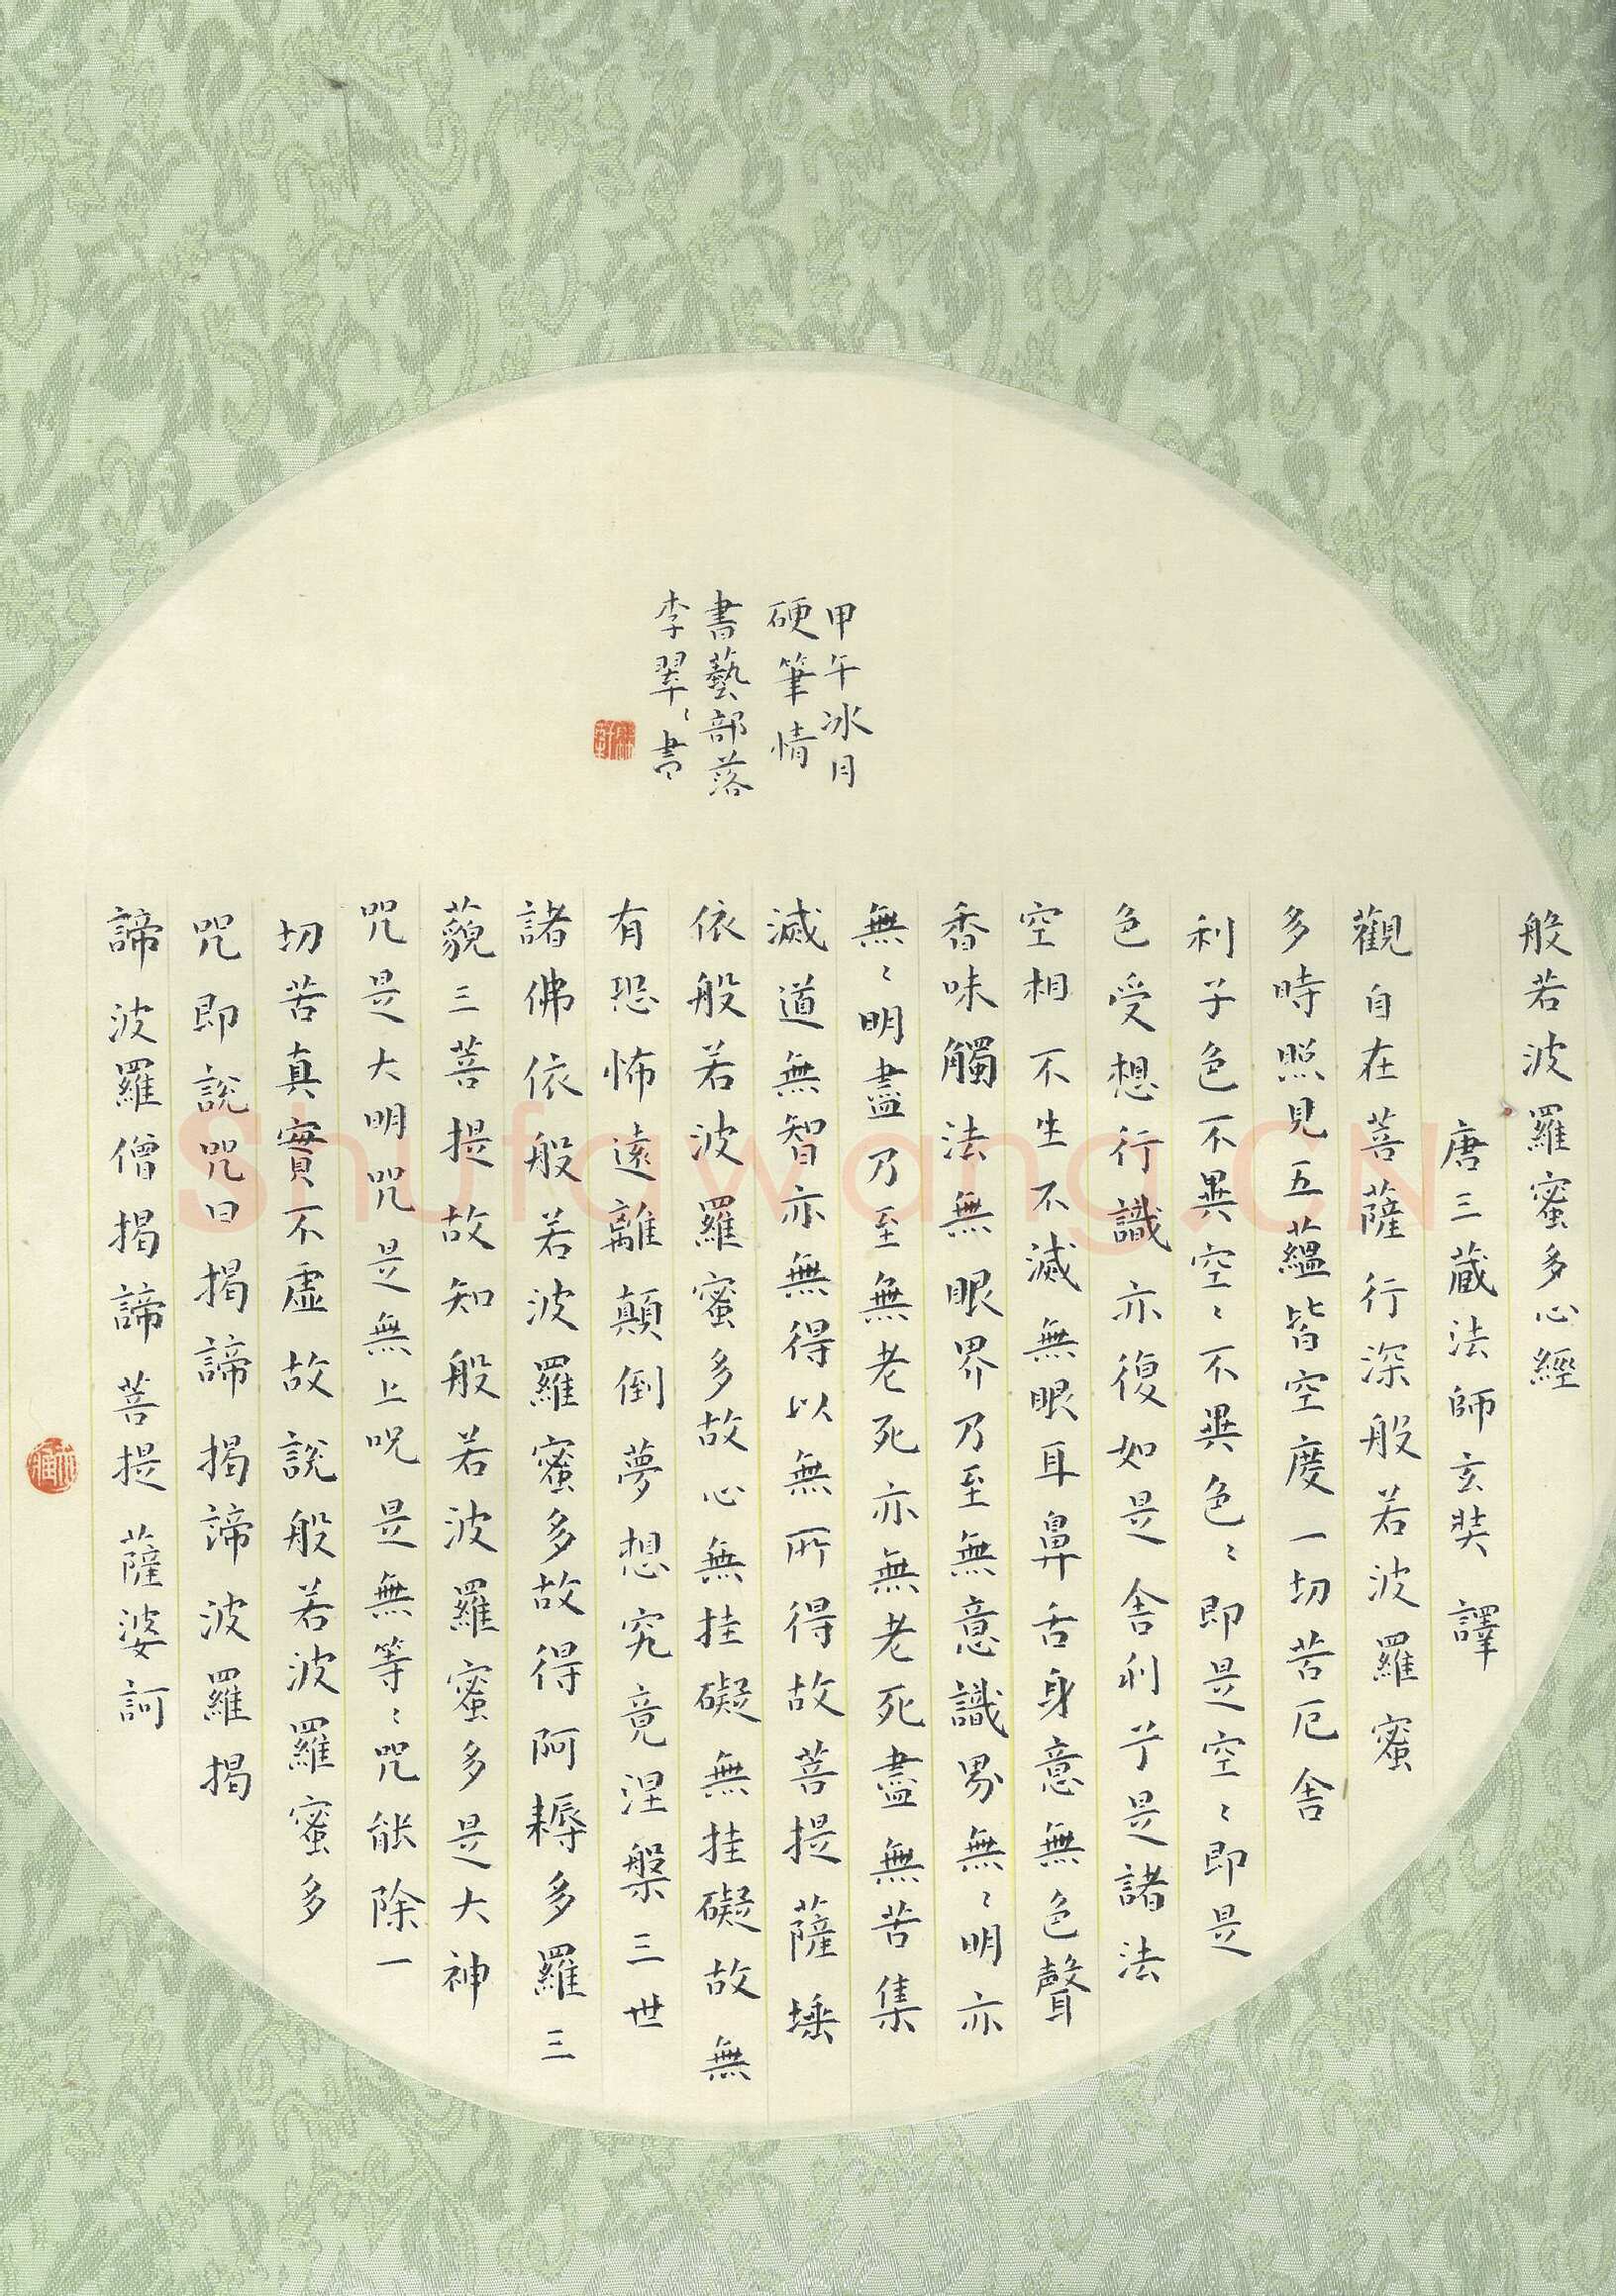 般若波羅蜜多心經
唐三藏法師玄奘譯
觀自在菩薩行深般若波羅蜜
多時照見五蘊皆空度一切苦厄舍
利子色不異空〻不異色〻即是空〻即是
色受想行識亦復如是舍利子是諸法
空相不生不滅無眼耳鼻舌身意無色聲
香味觸法無眼界乃至無意識界無〻明亦
無〻明盡乃至無老死亦無老死盡無苦集
滅道無智亦無得以無所得故菩提薩埵
依般若波羅蜜多故心無挂礙無挂礙故無
有恐怖遠離顛倒夢想究竟涅槃三世
諸佛依般若波羅蜜多故得阿耨多羅三
藐三菩提故知般若波羅蜜多是大神
咒是大明咒是無上呪是無等〻咒能除一
切苦真實不虛故說般若波羅蜜多
咒即說咒曰揭諦揭諦波羅揭
諦波羅僧揭諦菩提薩婆訶
甲午冰月
硬筆情
書藝部落
李翠〻書
Shufawang.CN